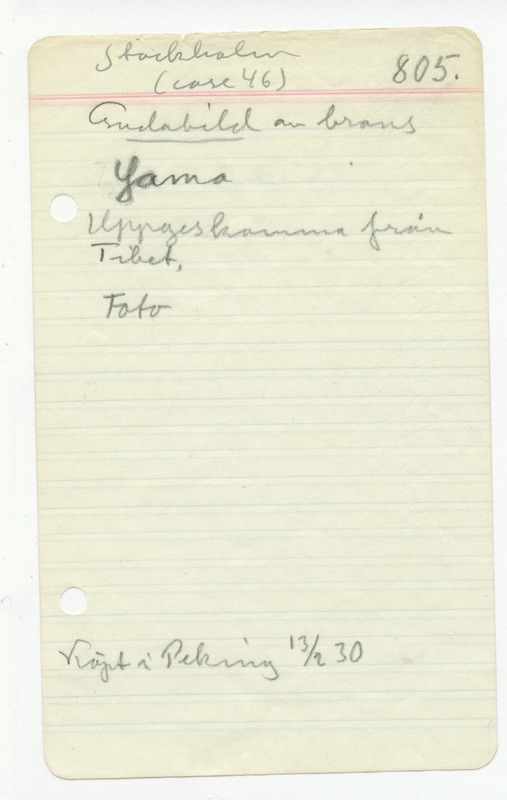 Stockholm
(case 46)
805.
Gudabild av brons
Yama
Uppges komma från
Tibet,
Foto
Köpt i Peking 13/2 30